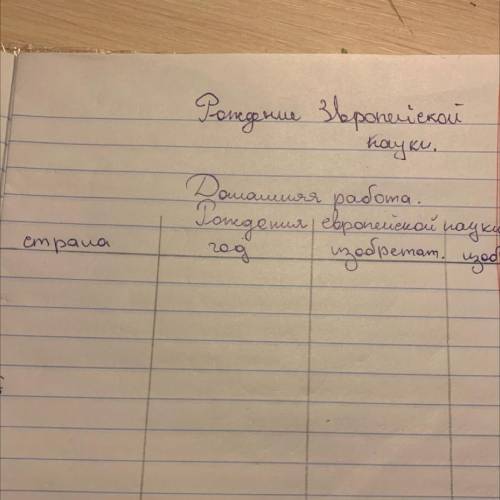 Рождение Европейской
науки.
Домашняя работа.
Рождения европейской науки
страна год изобретат. изоб